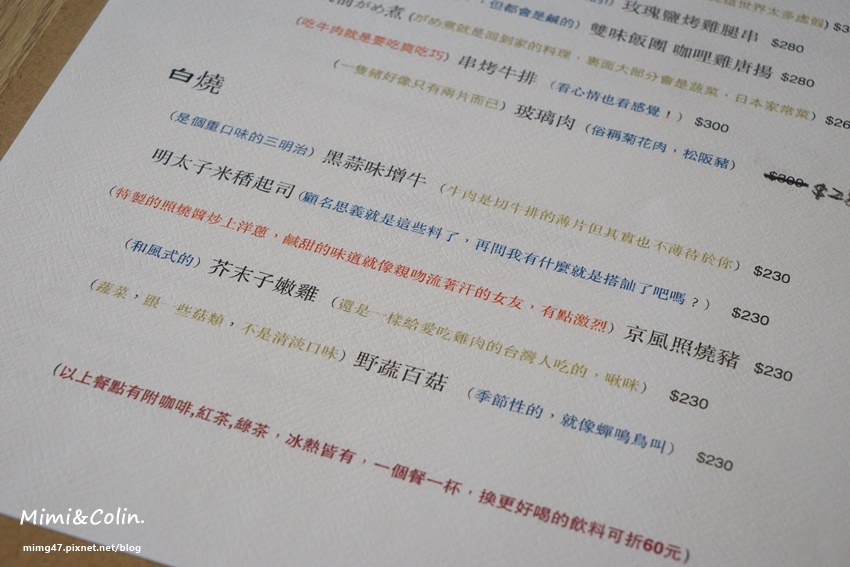 但都會是鹹的) 玫瑰鹽烤雞腿串
煮 (がめ煮就是回到家的料理,裏面大部分會是蔬菜,日本家常菜) 雙味飯團 咖哩雞唐揚 $280
(吃牛肉就是要吃爽吃巧) 串烤牛排 (看心情也看感覺!) $280
(一隻豬好像只有兩片而已) 玻璃肉 (俗稱菊花肉,松阪豬) $300
白燒 $300
(是個重口味的三明治) 黑蒜味增牛 (牛肉是切牛排的薄片但其實也不薄待於你) $230
明太子米䅵起司 (顧名思義就是這些料了,再問我有什麼就是搭訕了吧嗎?) $230
(特製的照燒醬炒上洋蔥,鹹甜的味道就像親吻流著汗的女友,有點激烈) 京風照燒豬 $230
(和風式的) 芥末子嫩雞 (還是一樣給愛吃雞肉的台灣人吃的,啾咪) $230
(蔬菜,跟一些菇類,不是清淡口味) 野蔬百菇 (季節性的,就像蟬鳴鳥叫) $230
(以上餐點有附咖啡,紅茶,綠茶,冰熱皆有,一個餐一杯,換更好喝的飲料可折60元)
Mimi&Colin.
mimg47.pixnet.net/blog